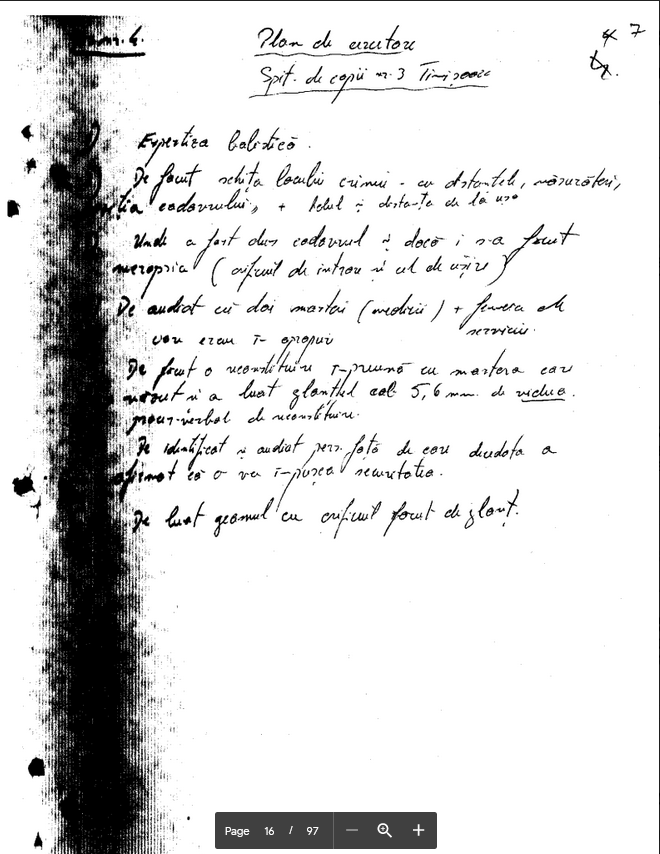 nr. 4.
Plan de cercetare
7
Spit. de copii nr. 3 Timișoara
Expertiza balistică.
De făcut schița locului crimei - cu distanțele, măsurători,
cadavrului, + și distanța de la
Unde a fost dus cadavrul și dacă i s-a făcut
necropsia (orificiul de intrare și cel de ieșire)
De audiat cei doi martori (medici) + femeia de
serviciu.
care erau în apropiere
De făcut o reconstituire împreună cu martora care
văzut și a luat glontele cal 5,6 mm. de vidia.
proces-verbal de reconstituire.
De identificat și audiat pers. față de care decedata a
afirmat că o va împușca securitatea.
De luat geamul cu orificiul făcut de glonț.
Page 16 / 97